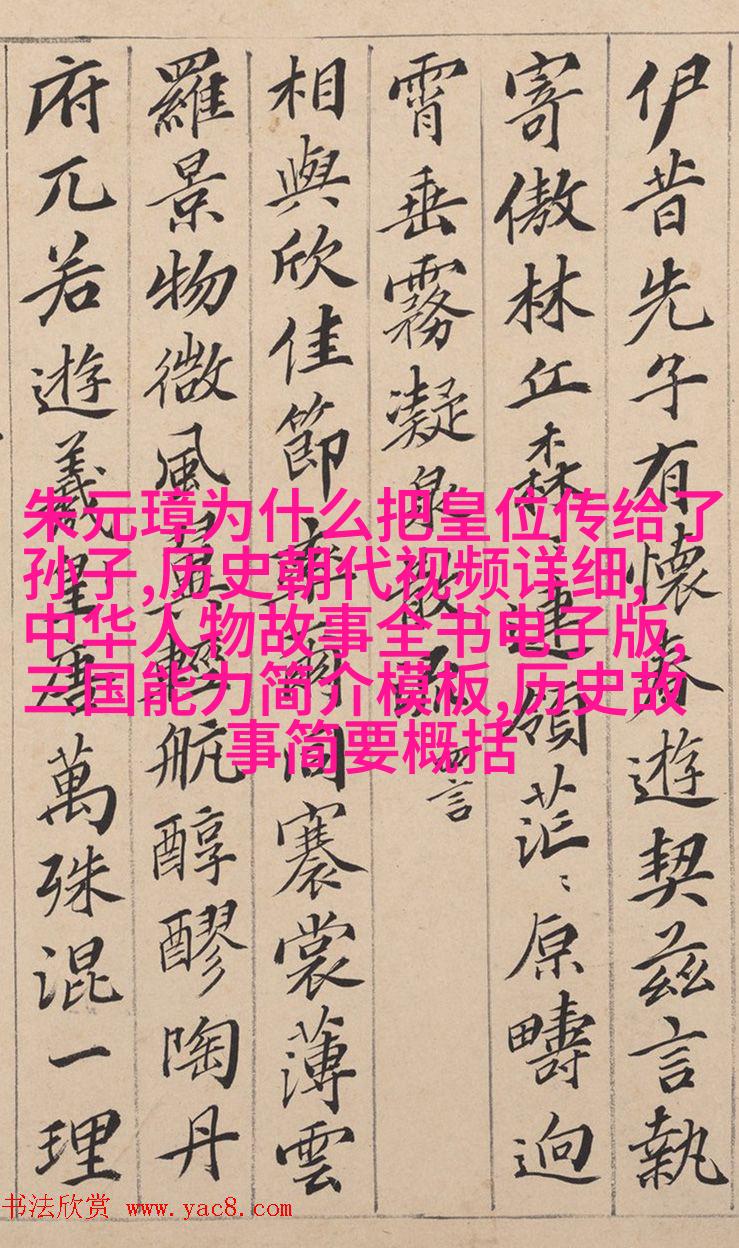 伊昔先子有懷春遊契茲言執
寄傲林丘森〻連領茫〻原疇迥
霄垂霧凝泉散 四言
相與欣佳節率爾同褰裳薄雲
羅景物微風翼輕航醇醪陶丹
府兀若遊羲皇唐萬殊混一理
朱元璋为什么把皇位传给了
孙子,历史朝代视频详细,
中华人物故事全书电子版,
三国能力简介模板,历史故
事简要概括
书法欣赏 www.yac8.com